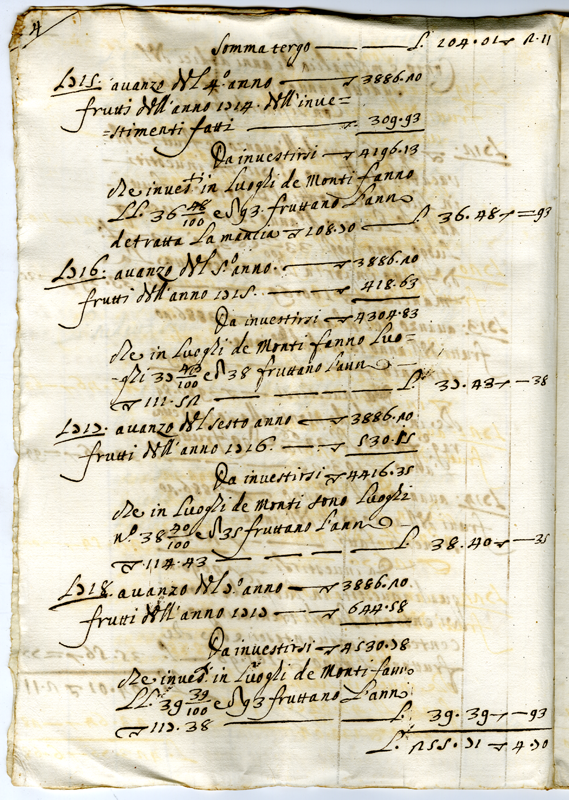 4
Somma tergo — L. 104.01 ▽ 2.11
1715. avanzo del 4.º anno — ▽ 3886.20
frutti dell'anno 1714. dell'inve=
=stimenti fatti — ▽ 309.93
Da investirsi — ▽ 4196.13
che invest.ti in Luoghi de Monti fanno
LL. 36 48/100 e ▽ 93. fruttano l'anno
detratta la mancia ▽ 108.70 — L. 36.48 ▽ — 93
1716. avanzo del 5.º anno. — ▽ 3886.20
frutti dell'anno 1715. — ▽ 418.63
Da investirsi ▽ 4304.83
che in Luoghi de Monti fanno Luo=
ghi 37 43/100 e ▽ 38 fruttano l'anno
▽ 111.52 — L. 37.43 ▽ — 38
1717. avanzo del sesto anno — ▽ 3886.20
frutti dell'anno 1716. — ▽ 530.15
Da investirsi ▽ 4416.35
che in Luoghi de Monti sono Luoghi
nº 38 40/100 e ▽ 35 fruttano l'anno
▽ 114.43 — L. 38.40 ▽ — 35
1718. avanzo del 7.º anno — ▽ 3886.20
frutti dell'anno 1717 — ▽ 644.58
Da investirsi — ▽ 4530.78
che invest.ti in Luoghi de Monti fanno
LL. 39 39/100 e ▽ 93 fruttano l'anno
▽ 117.38 — L. 39.39 ▽ — 93
L. 255.71 ▽ 4.70